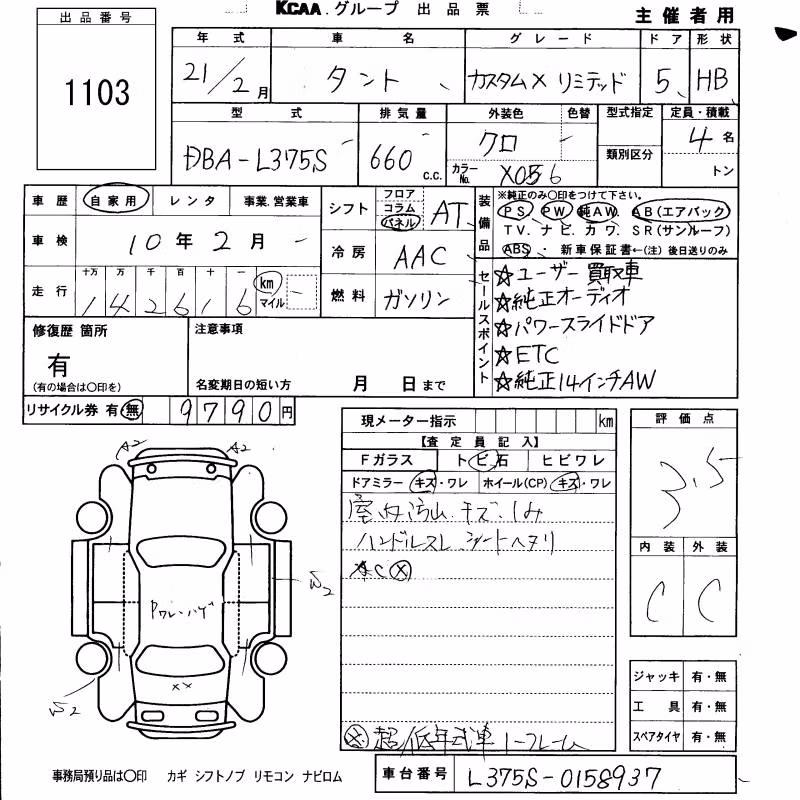 KCAA グループ 出品票
主催者用
出品番号
1103
年式 車名 グレード ドア 形状
21/2月 タント カスタムX リミテッド 5 HB
型式 排気量 外装色 色替 型式指定 定員・積載
DBA-L375S 660c.c. クロ カラーNo. X056 類別区分 4名 トン
車歴 自家用 レンタ 事業.営業車
シフト フロア コラム パネル AT
車検 10年2月
冷房 AAC
走行 十万 万 千 百 十 一 km マイル
142616
燃料 ガソリン
装備品 ※純正のみ〇印をつけて下さい。
PS PW 純AW. AB(エアバック)
TV. ナビ. カワ. SR(サンルーフ)
ABS・新車保証書←(注) 後日送りのみ
セールスポイント
☆ユーザー買取車
☆純正オーディオ
☆パワースライドドア
☆ETC
☆純正14インチAW
修復歴 箇所
有
(有の場合は〇印を)
注意事項
名変期日の短い方 月 日まで
リサイクル券 有 無 9790円
現メーター指示 km
【査定員記入】
Fガラス トビ石 ヒビワレ
ドアミラー キズ・ワレ ホイール(CP) キズ・ワレ
室内汚山.キズ.しみ
ハンドルスレ シートヘタリ
評価点
3.5
内装 外装
C C
A2 A2
W2
W2
××
ジャッキ 有・無
工具 有・無
スペアタイヤ 有・無
事務局預り品は〇印 カギ シフトノブ リモコン ナビロム
車台番号 L375S-0158937